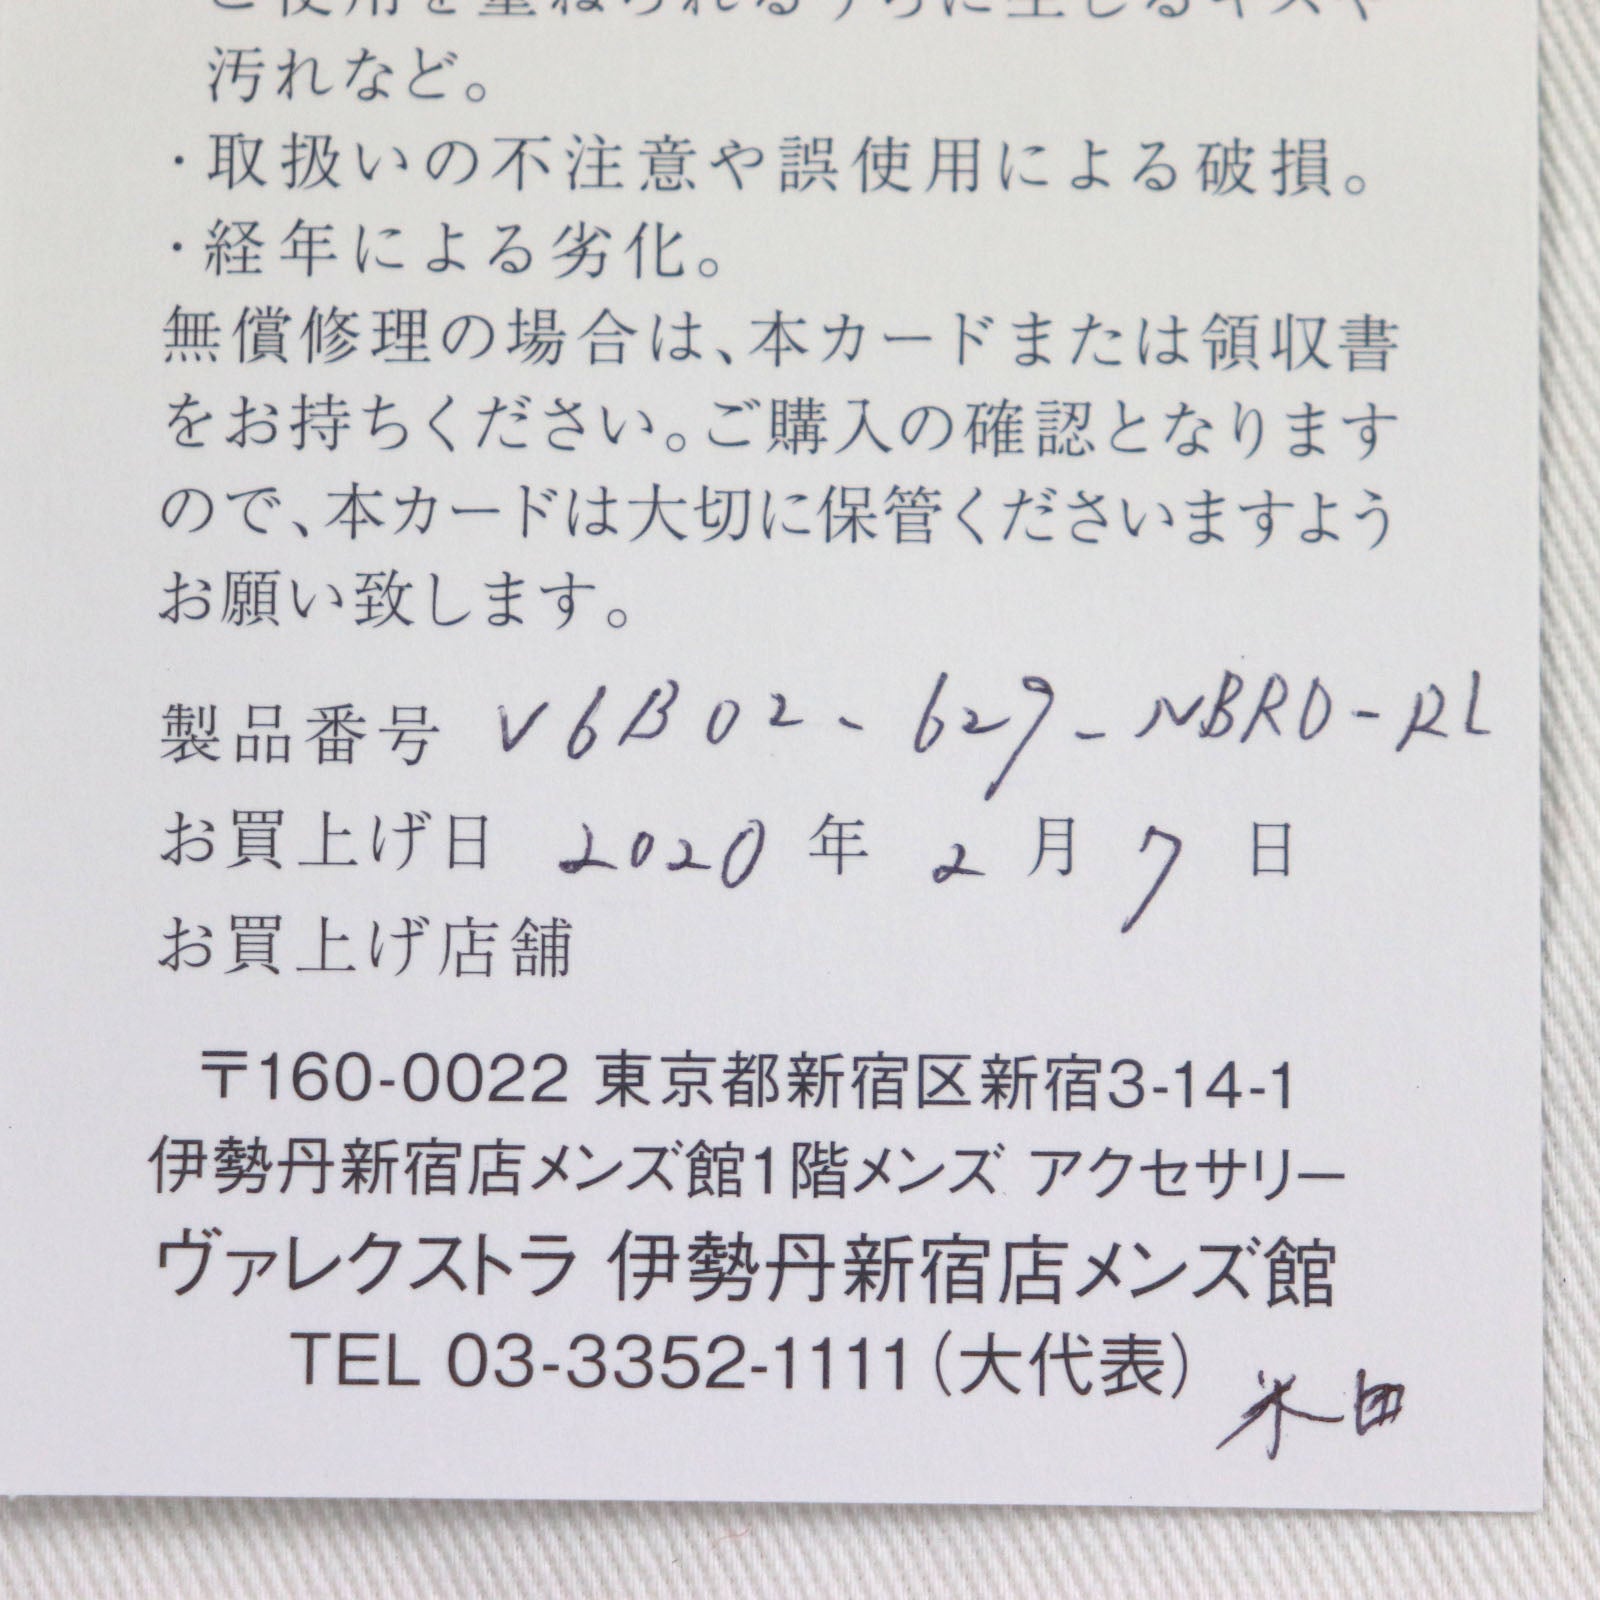 ご使用を重ねられるうちに生じるキズや
汚れなど。
・取扱いの不注意や誤使用による破損。
・経年による劣化。
無償修理の場合は、本カードまたは領収書
をお持ちください。ご購入の確認となります
ので、本カードは大切に保管くださいますよう
お願い致します。
製品番号 V6B02-627-NBRD-RL
お買上げ日 2020 年 2 月 7 日
お買上げ店舗
〒160-0022 東京都新宿区新宿3-14-1
伊勢丹新宿店メンズ館1階メンズ アクセサリー
ヴァレクストラ 伊勢丹新宿店メンズ館
TEL 03-3352-1111（大代表）
米田